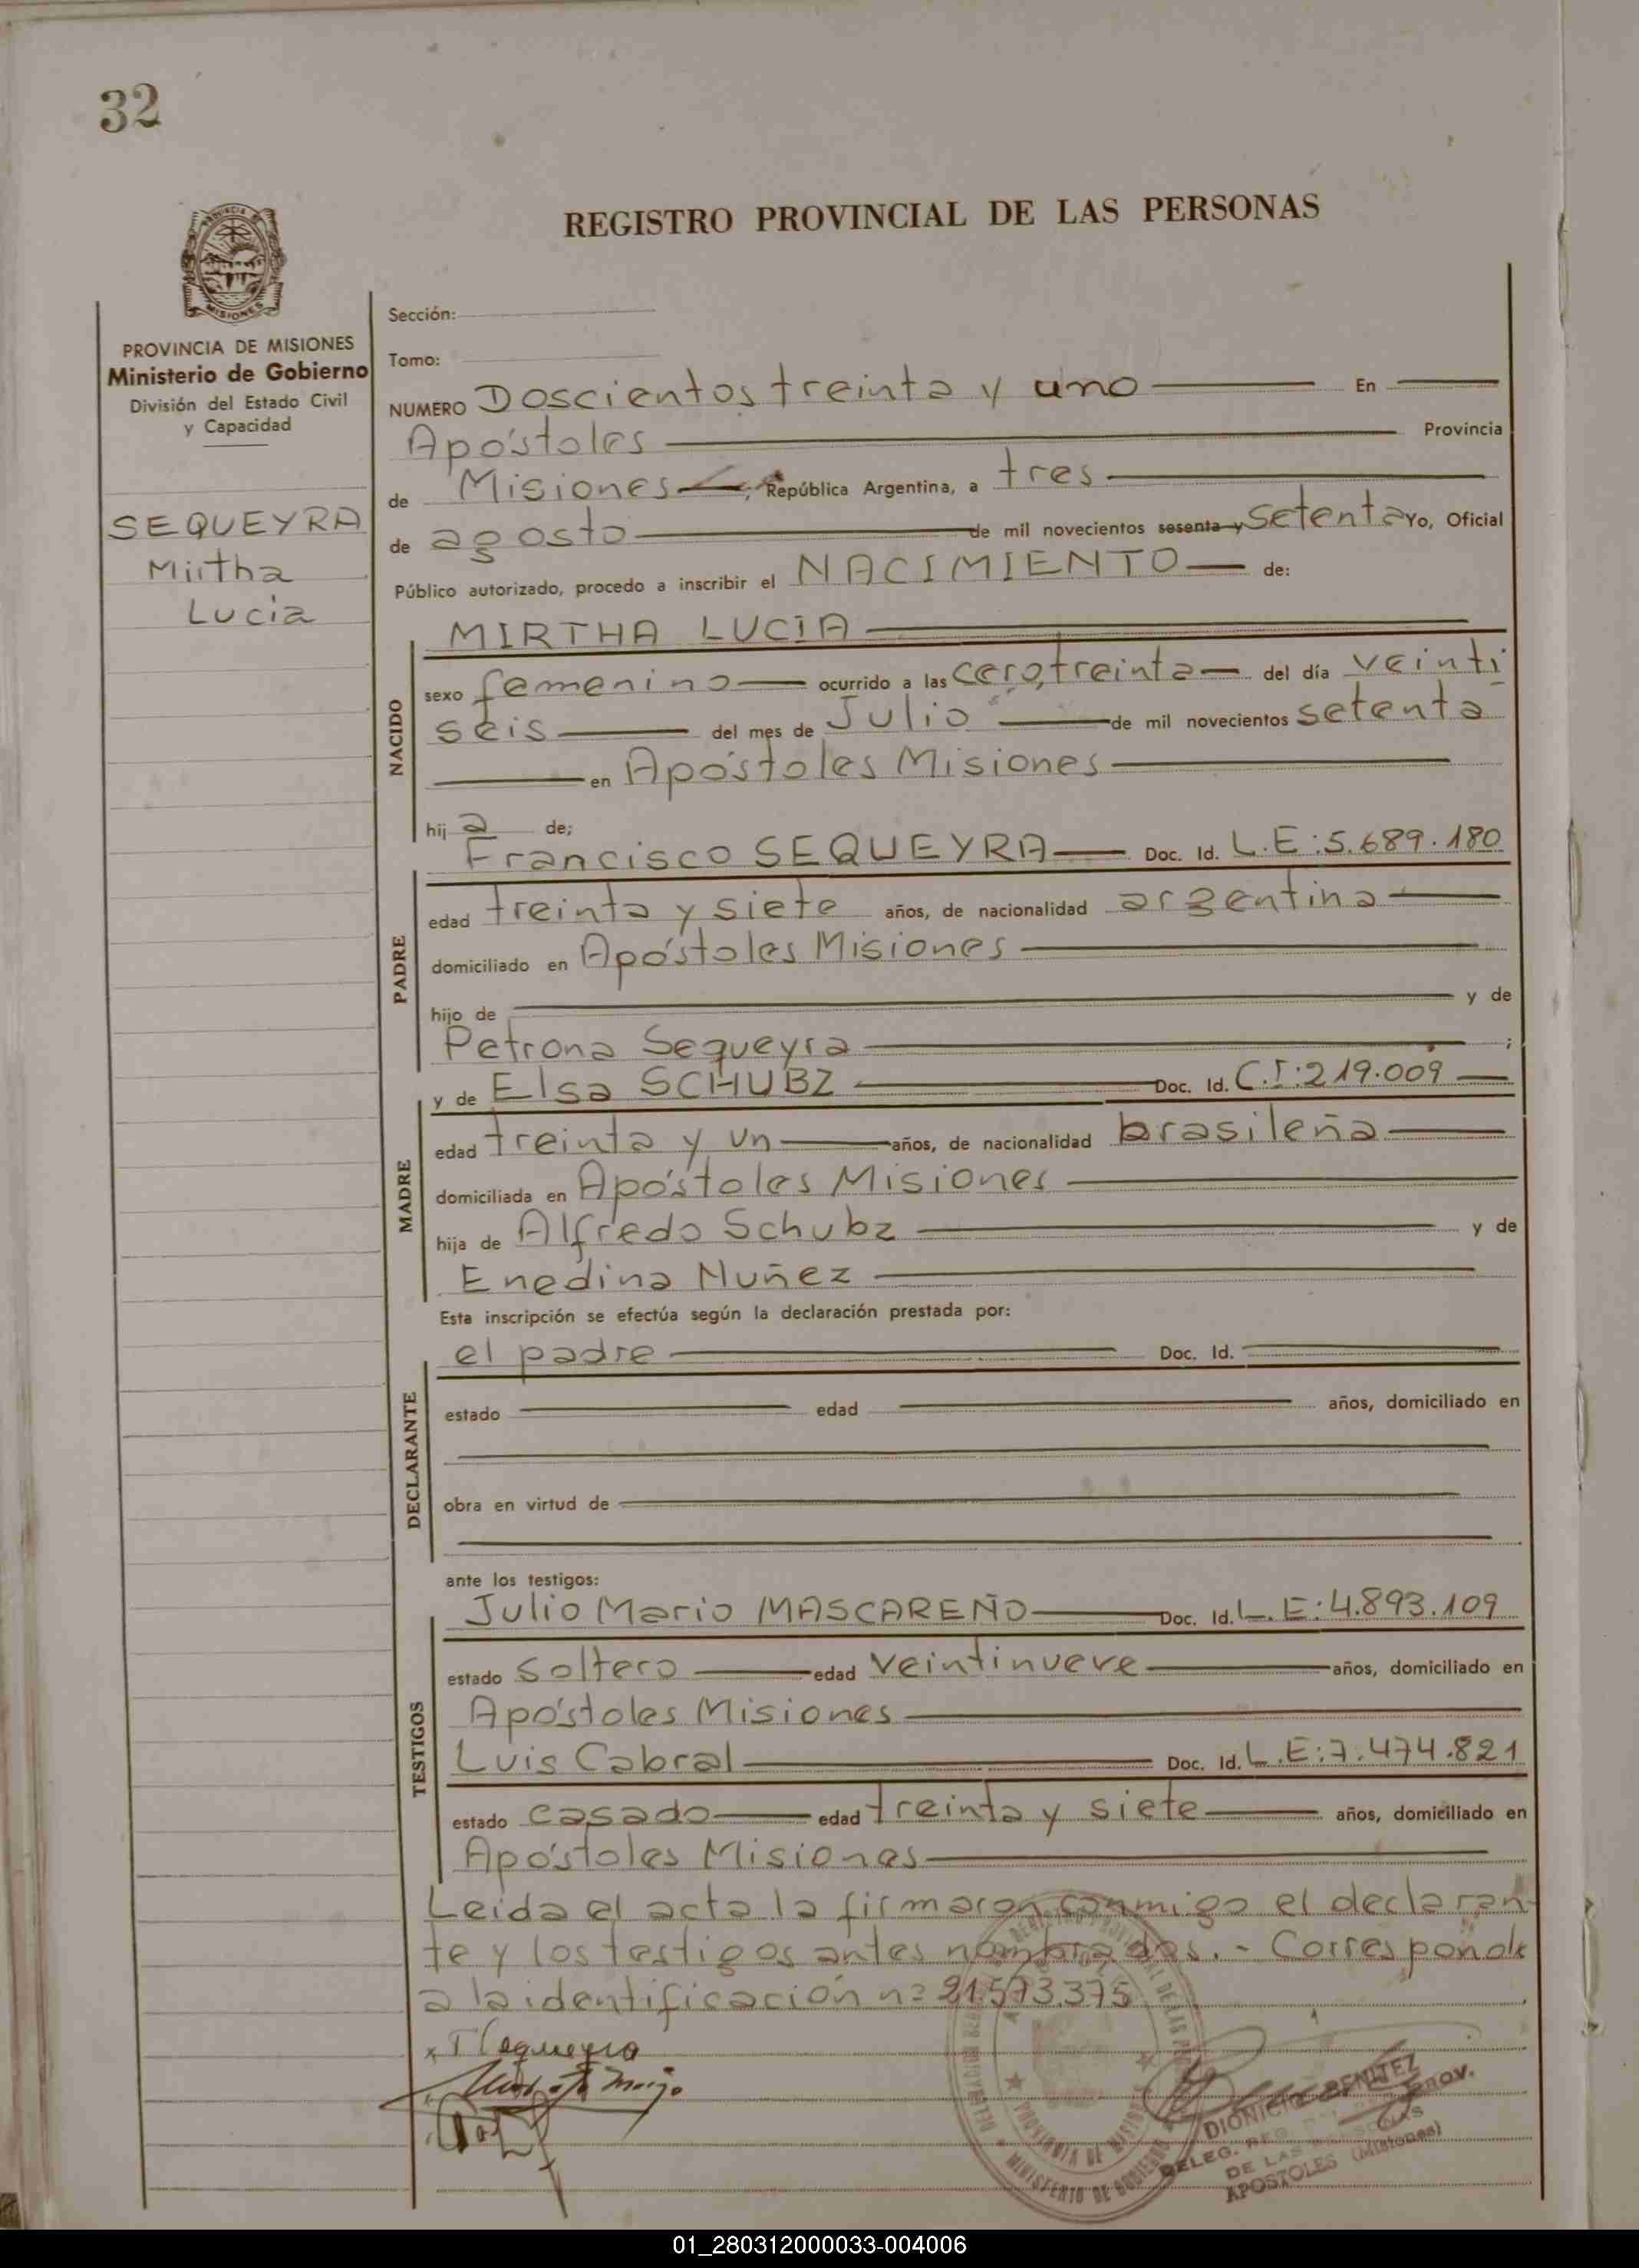 32
REGISTRO PROVINCIAL DE LAS PERSONAS
PROVINCIA DE MISIONES
Ministerio de Gobierno
División del Estado Civil
y Capacidad
SEQUEYRA
Mirtha
Lucia
Sección:
Tomo:
NUMERO Doscientos treinta y uno En
Apóstoles Provincia
de Misiones, República Argentina, a tres
de agosto de mil novecientos sesenta y setenta Yo, Oficial
Público autorizado, procedo a inscribir el NACIMIENTO de:
MIRTHA LUCIA
NACIDO
sexo femenino ocurrido a las cero, treinta del día veinti
seis del mes de Julio de mil novecientos setenta
en Apóstoles Misiones
hij a de;
Francisco SEQUEYRA Doc. Id. L.E:5.689.180
PADRE
edad treinta y siete años, de nacionalidad argentina
domiciliado en Apóstoles Misiones
hijo de y de
Petrona Sequeyra ;
y de Elsa SCHUBZ Doc. Id. C.I:219.009
MADRE
edad treinta y un años, de nacionalidad brasileña
domiciliada en Apóstoles Misiones
hija de Alfredo Schubz y de
Enedina Nuñez
Esta inscripción se efectúa según la declaración prestada por:
el padre Doc. Id.
DECLARANTE
estado edad años, domiciliado en
obra en virtud de
ante los testigos:
Julio Mario MASCAREÑO Doc. Id. L.E:4.893.109
TESTIGOS
estado soltero edad veintinueve años, domiciliado en
Apóstoles Misiones
Luis Cabral Doc. Id. L.E:7.474.821
estado casado edad treinta y siete años, domiciliado en
Apóstoles Misiones
Leida el acta la firmaron conmigo el declaran-
te y los testigos antes nombrados.- Corresponde
a la identificación nº 21.573.375
Sequeyra
DIONICIO BENITEZ
DELEG. REG. DEL PROV.
DE LAS PERSONAS
APOSTOLES (Misiones)
PROVINCIA DE MISIONES
MINISTERIO DE GOBIERNO
01_280312000033-004006